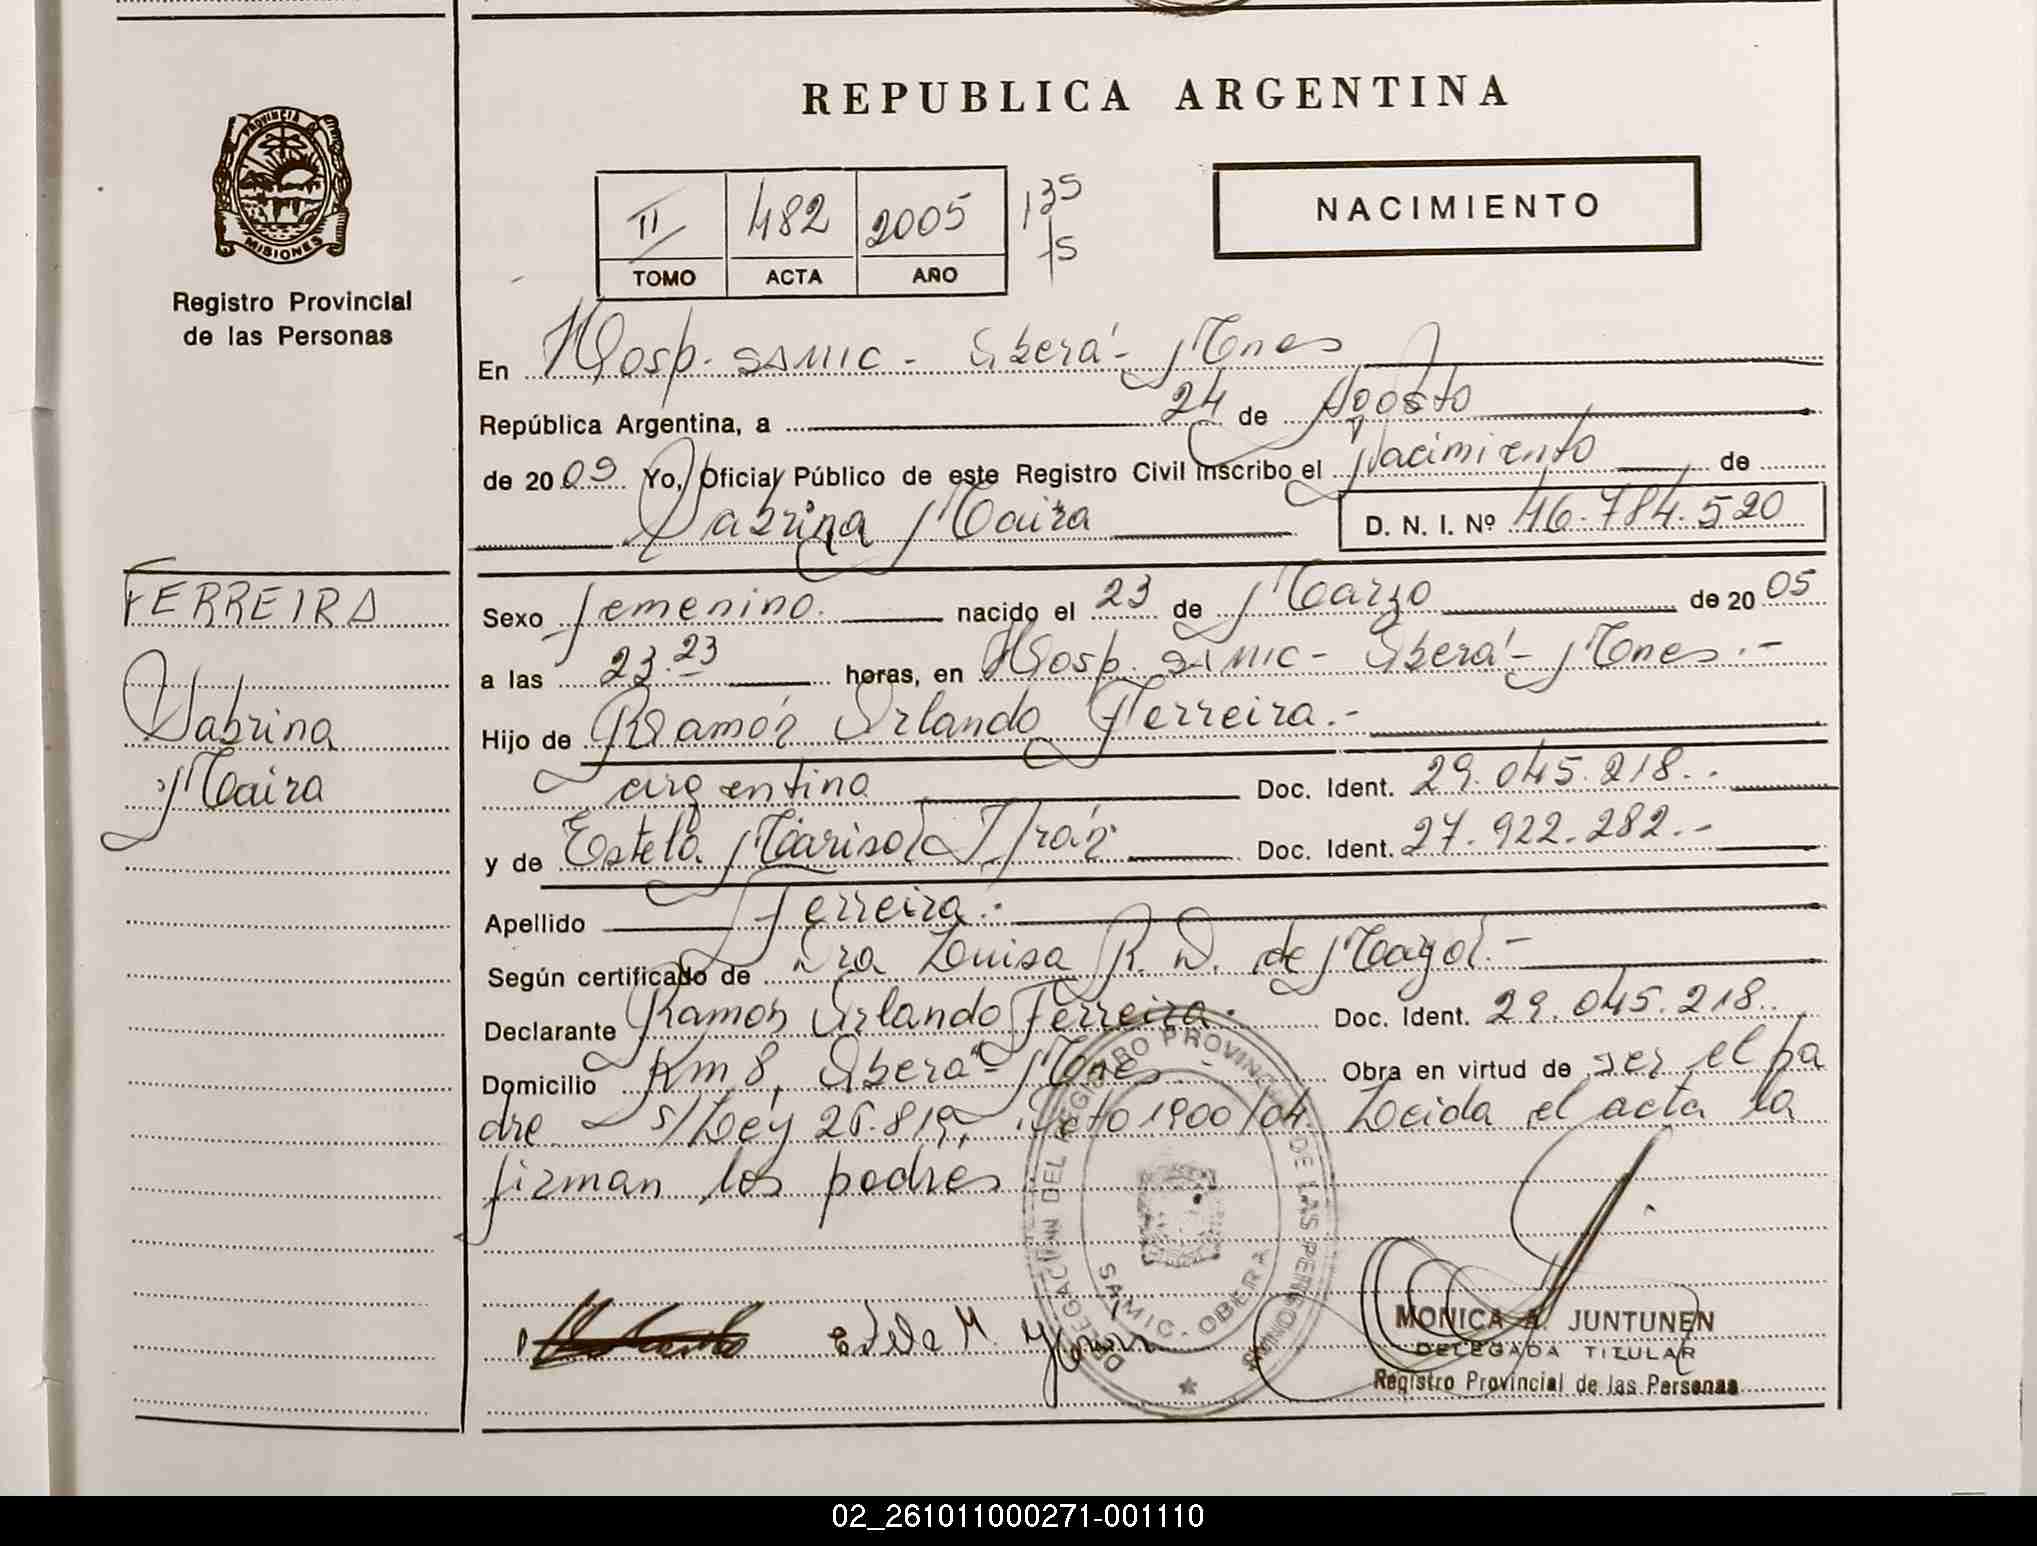 REPUBLICA ARGENTINA
PROVINCIA DE
MISIONES
Registro Provincial
de las Personas
II 482 2005 135
15
TOMO ACTA AÑO
NACIMIENTO
En Hosp. SAMIC - Oberá - Mnes
República Argentina, a 24 de Agosto
de 2009 Yo, Oficial Público de este Registro Civil inscribo el Nacimiento de
Sabrina Maira D. N. I. Nº 46.784.520
FERREIRA
Sabrina
Maira
Sexo femenino. nacido el 23 de Marzo de 2005
a las 23.23 horas, en Hosp. SAMIC - Oberá - Mnes.-
Hijo de Ramón Orlando Ferreira.-
argentino Doc. Ident. 29.045.218.-
y de Estela Marisol Doc. Ident. 27.922.282.-
Apellido Ferreira.-
Según certificado de Dra Luisa R. D. de Mayol.-
Declarante Ramón Orlando Ferreira. Doc. Ident. 29.045.218.
Domicilio Km 8, Oberá - Mnes Obra en virtud de ser el pa
dre - s/Ley 26.819, Dcto 1900/04 Leida el acta la
firman los padres
DELEGACION DEL REGISTRO PROVINCIAL DE LAS PERSONAS
SAMIC - OBERA
Estela M.
MONICA A. JUNTUNEN
DELEGADA TITULAR
Registro Provincial de las Personas
02_261011000271-001110